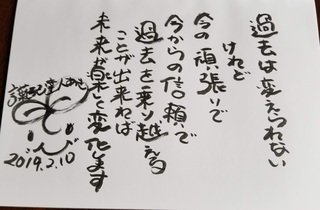 過去は変えられない
けれど
今の頑張りで
今からの信頼で
過去を乗り越える
ことが出来れば
未来が楽しく変化します
2019.2.10